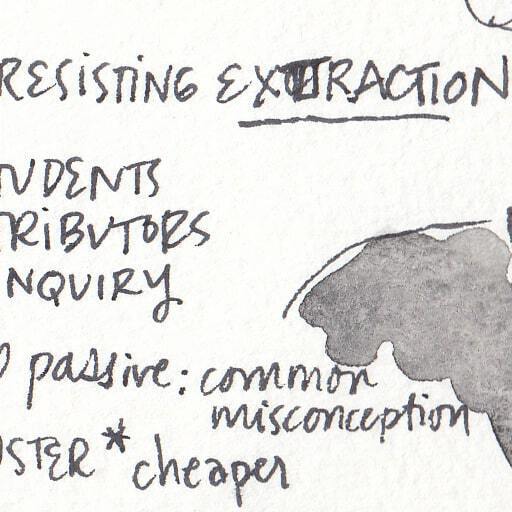 RESISTING EXTRACTION
TUDENTS
TRIBUTORS
NQUIRY
passive: common
misconception
STER * cheaper